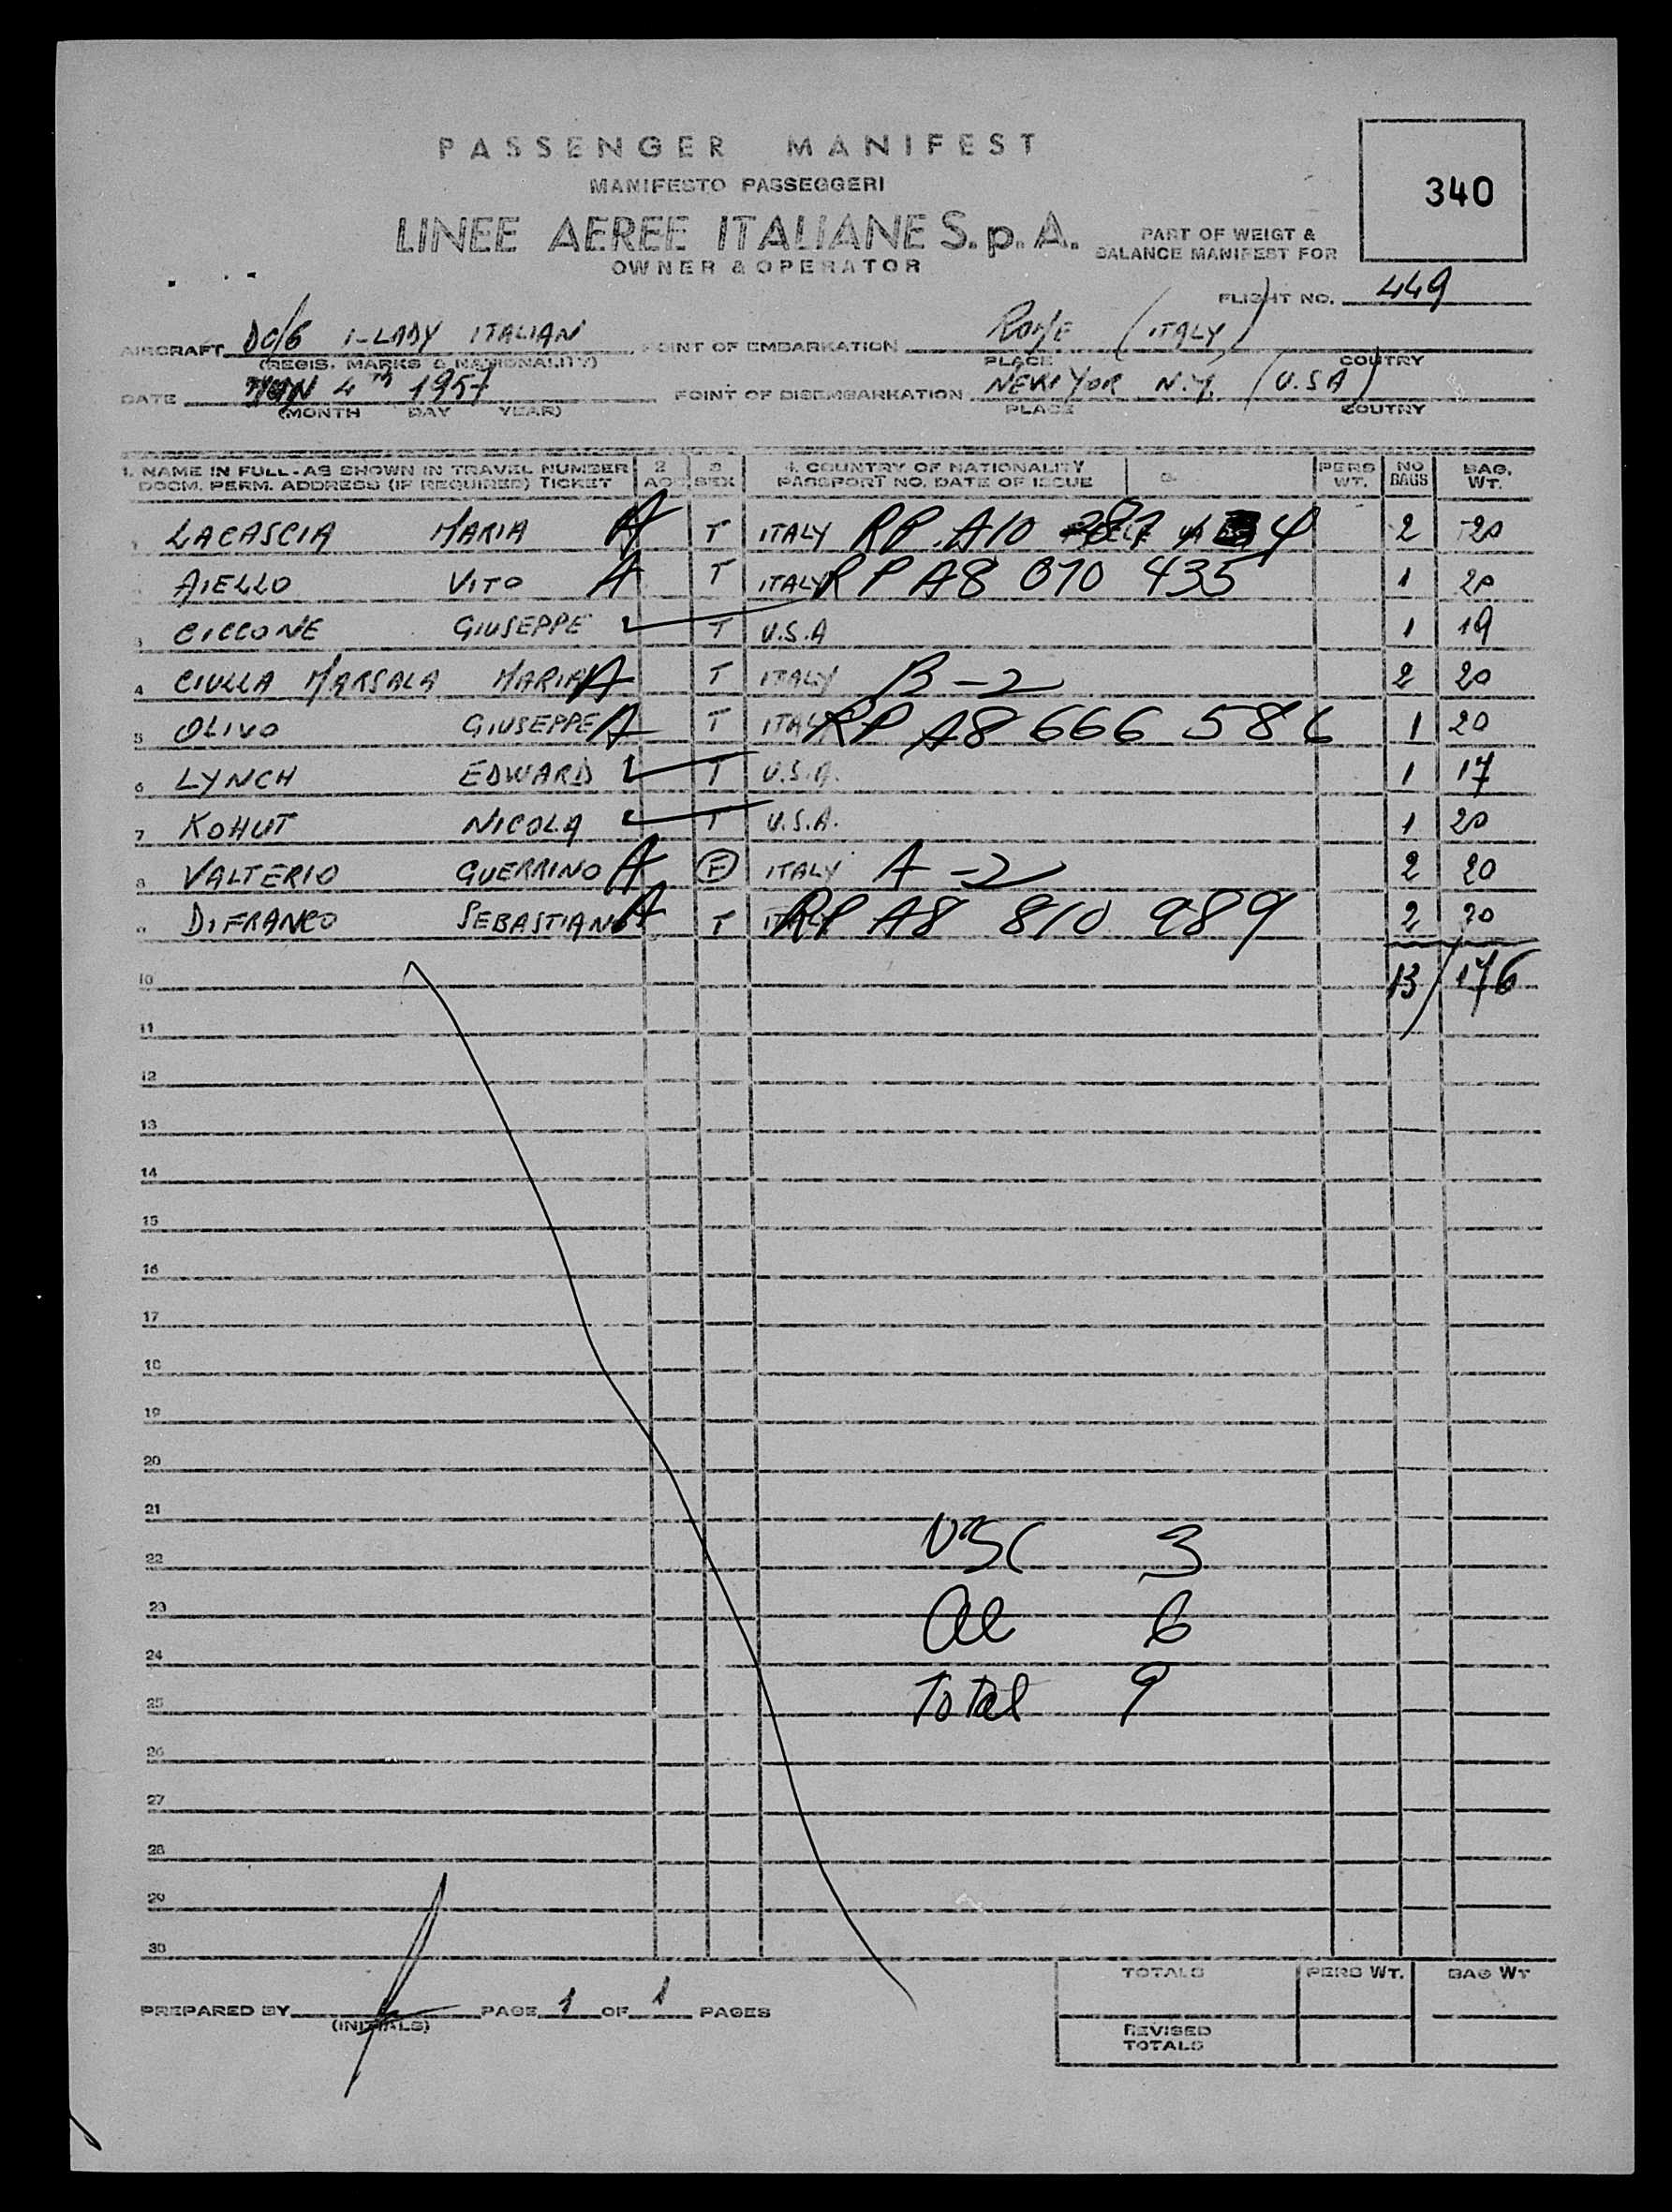 340
PASSENGER MANIFEST
MANIFESTO PASSEGGERI
LINEE AEREE ITALIANE S.p.A.
OWNER & OPERATOR
PART OF WEIGT &
BALANCE MANIFEST FOR
FLIGHT NO. 449
AIRCRAFT DC/6 I-LADY ITALIAN POINT OF EMBARKATION ROME (ITALY)
(REGIS. MARKS & NATIONALITY) PLACE COUTRY
DATE 4TH 1957 POINT OF DISEMBARKATION NEW YOR N.Y. (U.S.A)
(MONTH DAY YEAR) PLACE COUTRY
1. NAME IN FULL-AS SHOWN IN TRAVEL NUMBER 2 3 4. COUNTRY OF NATIONALITY 5. PERS NO BAG.
DOCM. PERM. ADDRESS (IF REQUIRED) TICKET AGE SEX PASSPORT NO. DATE OF ISCUE WT. BAGS WT.
1 LACASCIA MARIA A T ITALY RP A10 4 2 20
AIELLO VITO A T ITALY RP A8 070 435 1 20
3 CICCONE GIUSEPPE T U.S.A 1 19
4 CIULLA MARSALA MARIA A T ITALY B-2 2 20
5 OLIVO GIUSEPPE A T ITALY RP A8 666 586 1 20
6 LYNCH EDWARD T U.S.A. 1 17
7 KOHUT NICOLA T U.S.A. 1 20
8 VALTERIO GUERRINO A F ITALY A-2 2 20
9 DIFRANCO SEBASTIANO A T ITALY RP A8 810 989 2 20
10 13/176
11
12
13
14
15
16
17
18
19
20
21
22 USC 3
23 Al 6
24
25 Total 9
26
27
28
29
30
TOTALS PERS WT. BAG WT
PREPARED BY PAGE 1 OF 1 PAGES
(INITIALS)
REVISED
TOTALS